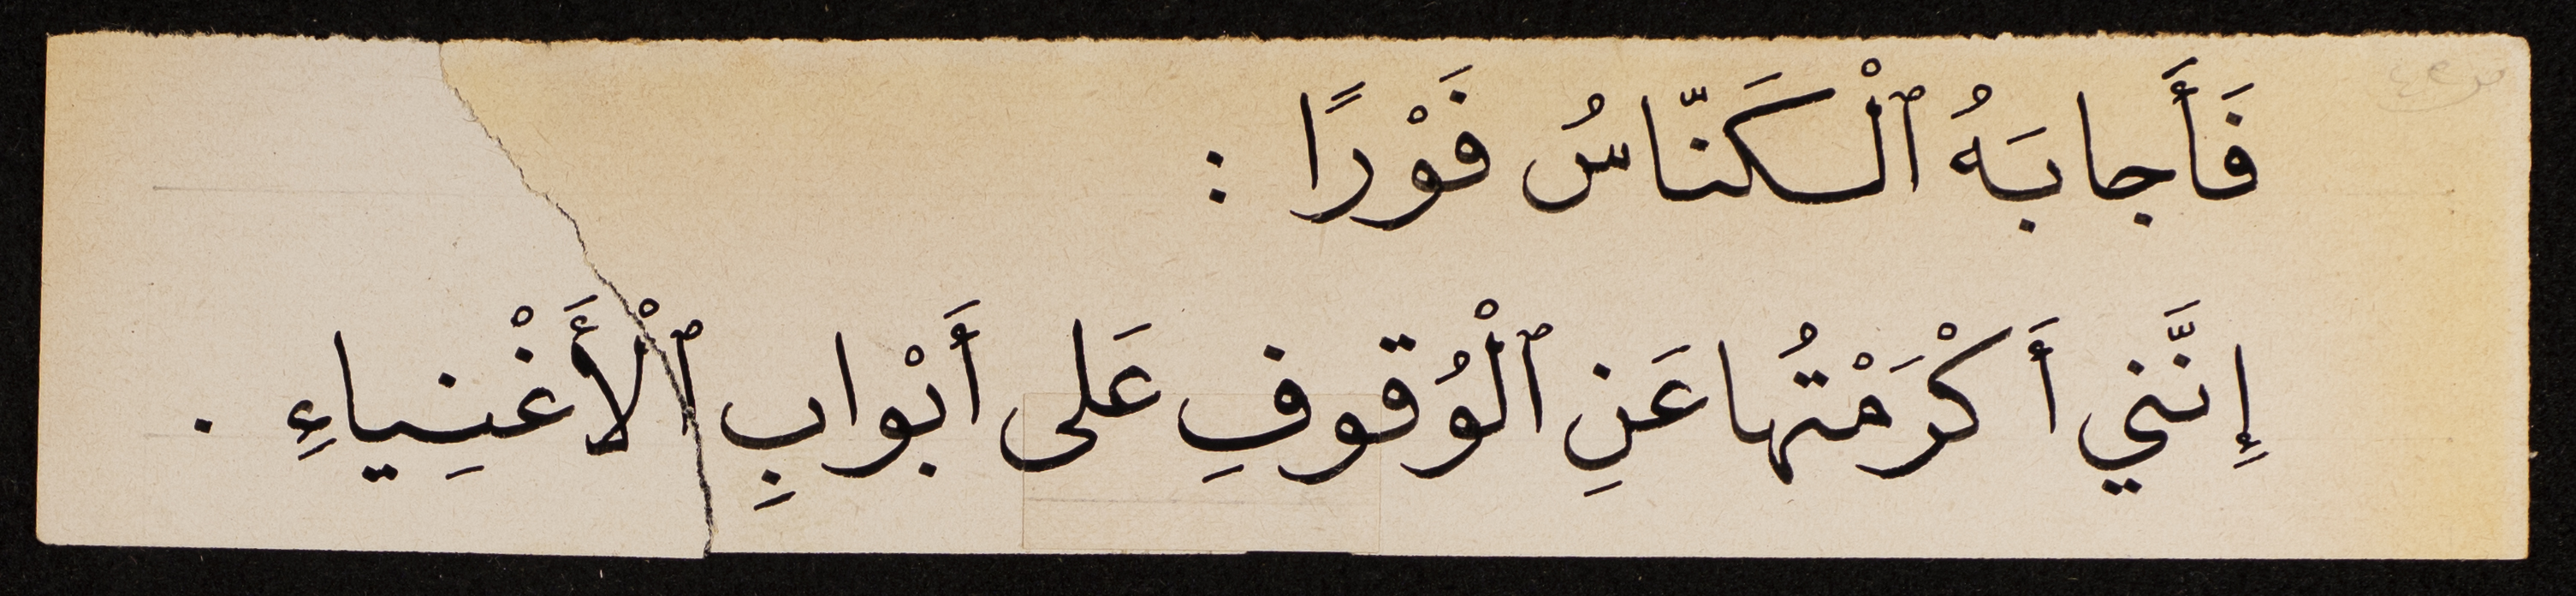 فَأَجابَهُ ٱلْكَنّاسُ فَوْرًا :
إِنَّني أَكْرَمْتُها عَنِ ٱلْوُقوفِ عَلى أَبْوابِ ٱلْأَغْنِياءِ .